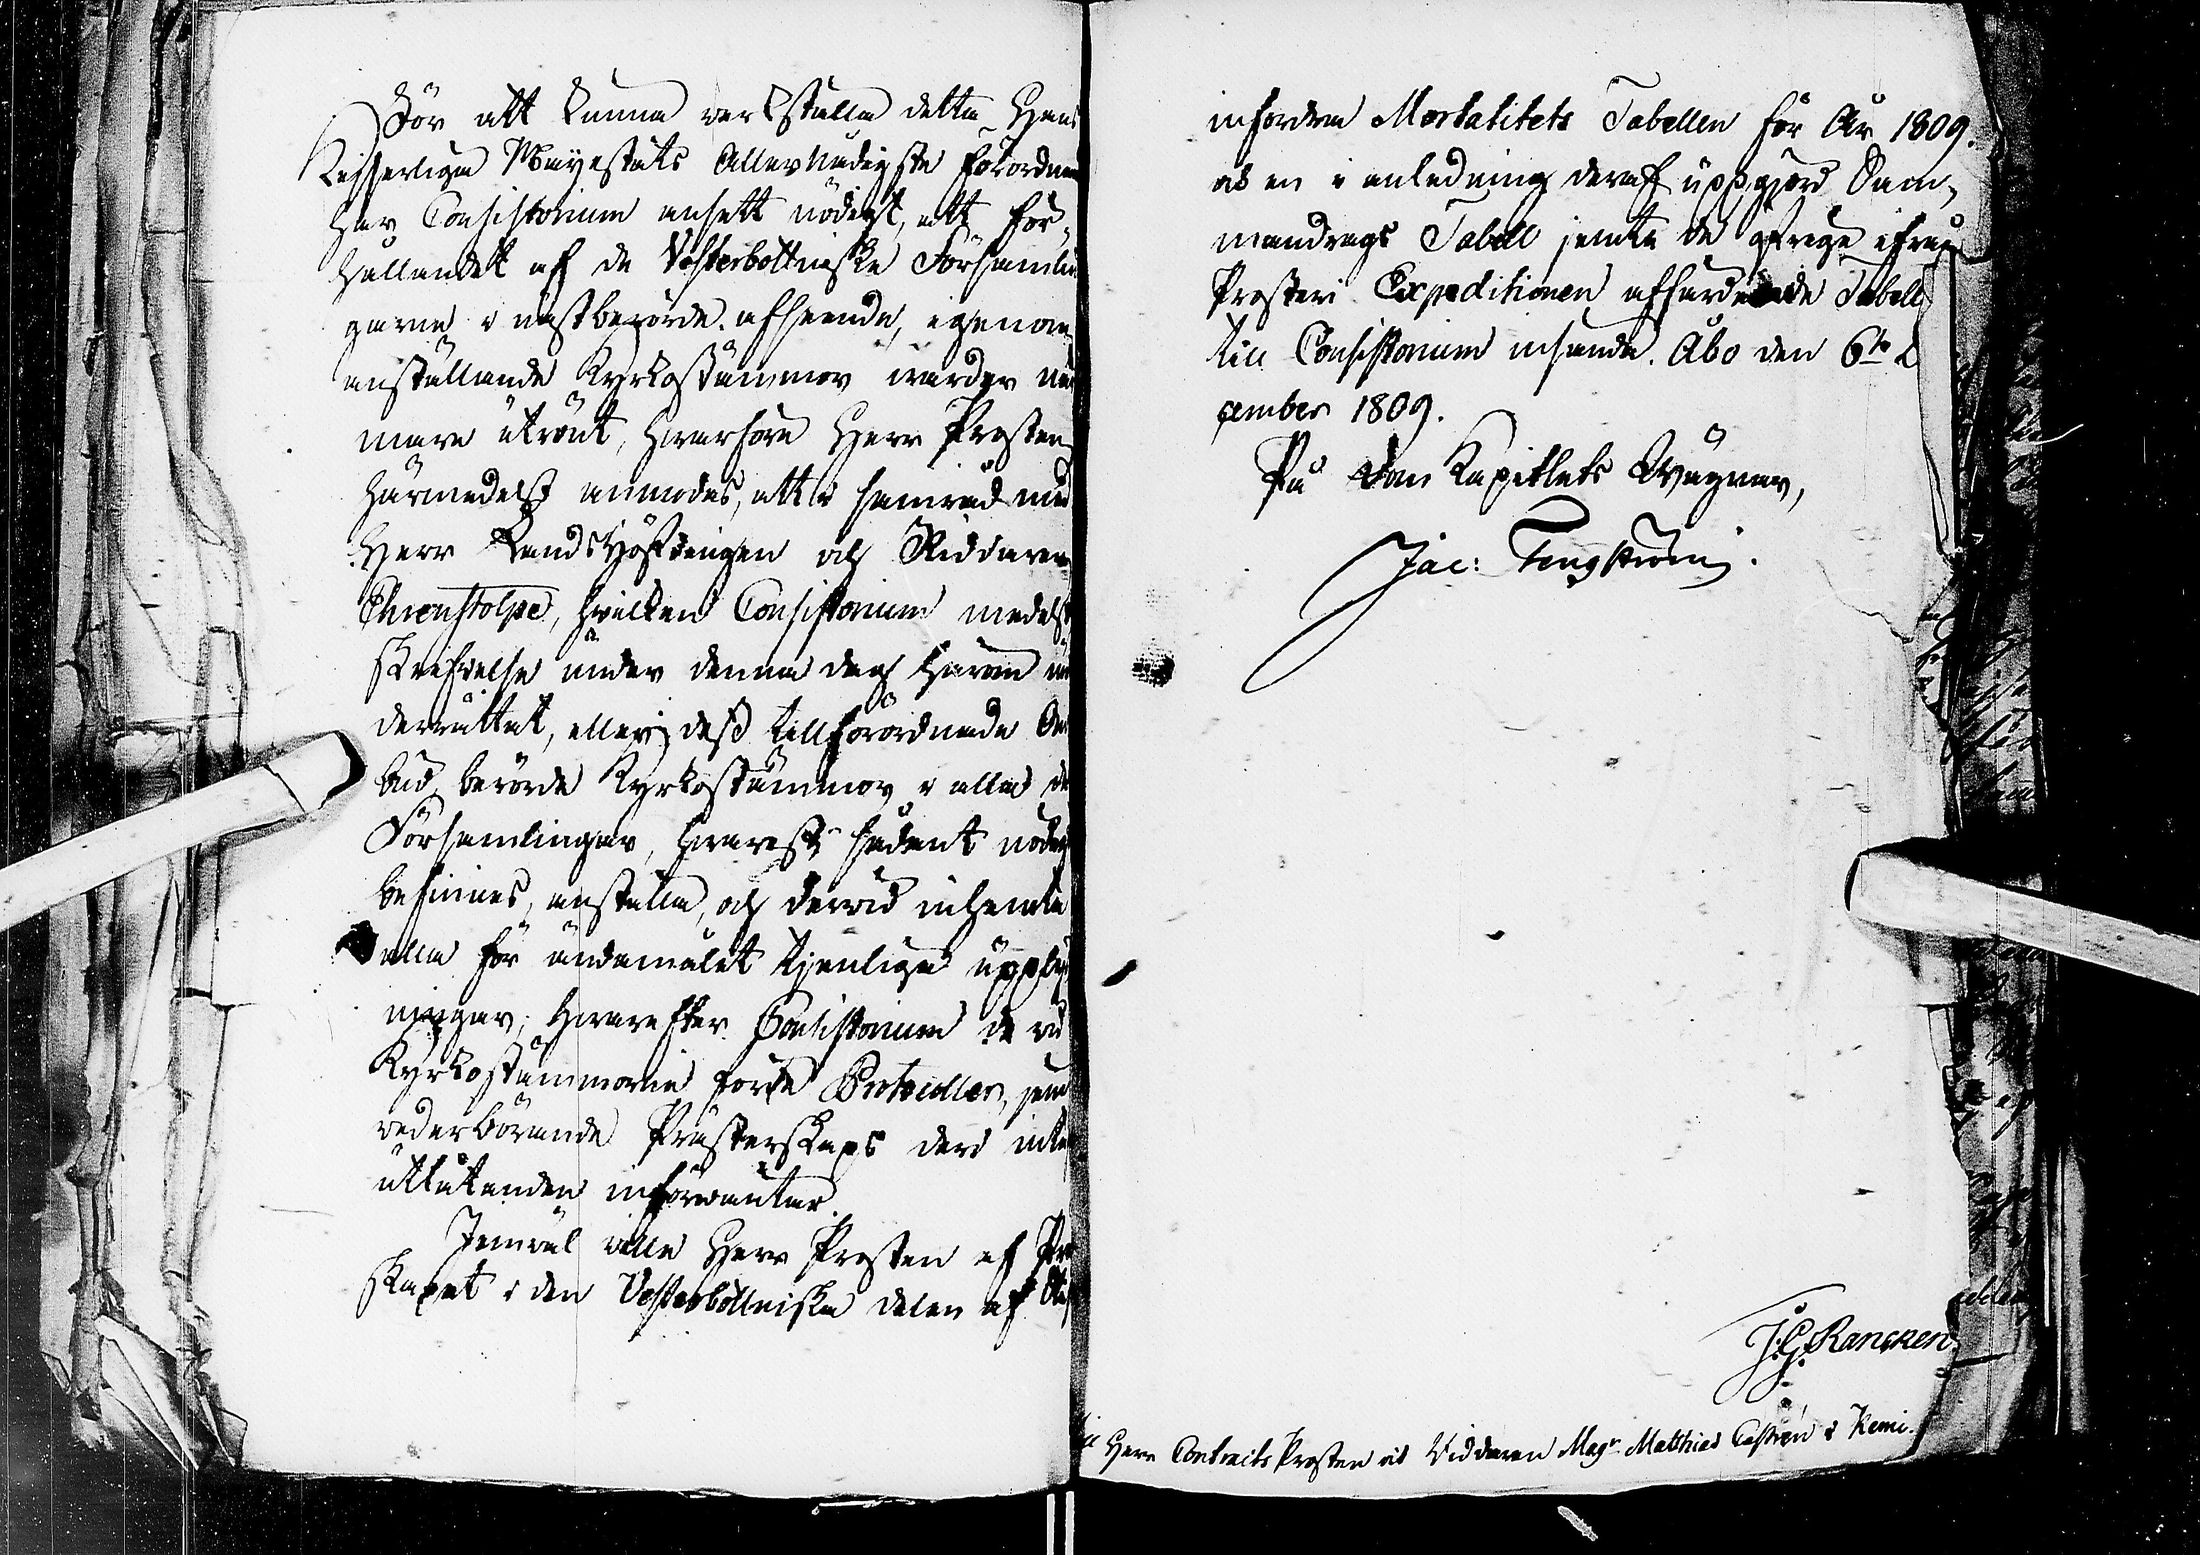 För att kunna verkställa detta Hans
Kejserliga Mayestäts Allernådigste förordnan
har Consistorium ansett nödigt, att för-
hållandet af de Vesterbottniske Församlin
garne i nästberörde afseende, igenom
anställande Kyrkostämmor warder när
mare utrönt, hwarföre Herr Prosten
härmedelst anmodas, att i samråd med
Herr Landshöfdingen och Riddaren
Ehrenstolpe, hvilken Consistorium medelst
skrifvelse under denna dag härom un
derrättat, eller dess tillförordnade Om
bud, berörde Kyrkostämmor i alla de
Församlingar, hwarest sådant nödigt
befinnes, anställa, och dervid inhemta
alla för ändamålet tjenliga upplys
ningar; hwarefter Consistorium de vid
Kyrkostämmorne förde Protocoller, jemte
vederbörande Prästerskaps der
utlåtanden införväntar.
Jemväl ville Herr Prosten af Pre
skapet i den Vesterbottniska delen af
infordra Mortalitets Tabellen för År 1809.
och en i anledning deraf uppgjord Sam-
mandrags Tabell jemte de öfrige ifrån
Prosteri Expeditionen affärdade Tabell
till Consistorium insända. Åbo den 6te D
cember 1809.
På Dom Kapitlets Wägnar,
Jac: Tengström.
J.G. Rancken
Till Herr Contracts Prosten och Riddaren Magr Matthias Castrén i Kemi.